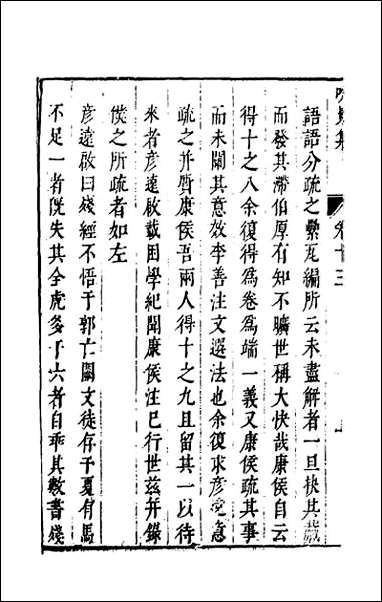 吹景集 卷十三
語語分疏之纍瓦編所云未盡解者一旦抉其藏
而發其滯伯厚有知不曠世稱大快哉康侯自云
得十之八余復得為卷為端一義又康侯疏其事
而未闡其意效李善注文選法也余復求彥遠意
疏之并質康侯吾兩人得十之九且留其一以待
來者彥遠啟載困學紀聞康侯注已行世茲并錄
僕之所疏者如左
彥遠啟曰殘經不悟于郭亡闕文徒存于夏有馬
不足一者旣失其全虎多于六者自乖其數書殘